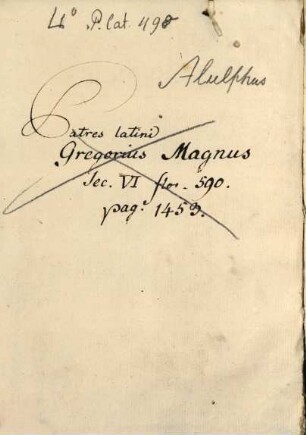 4° P. lat. 498
Alulphus
Patres latini
Gregorius Magnus
Sec. VI flor. 590.
pag. 1459.